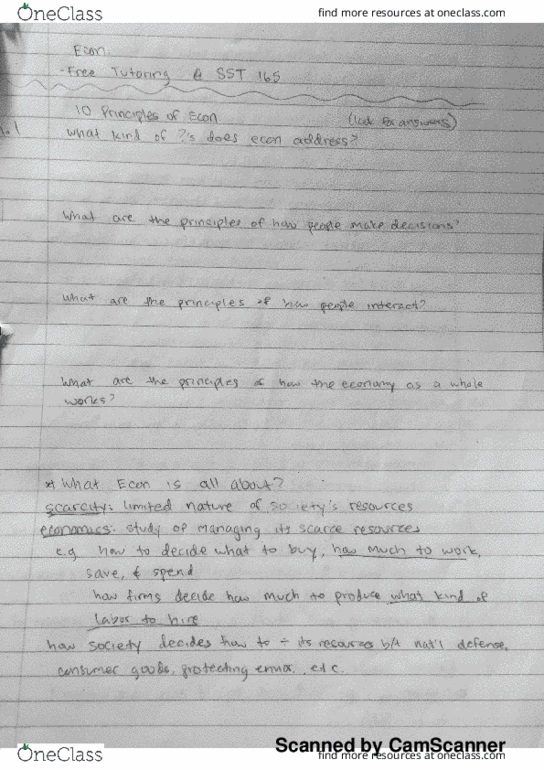 OneClass
find more resources at oneclass.com
Econ
-Free Tutoring @ SST 165
10 Principles of Econ (look for answers)
1.1
what kind of ?'s does econ address?
What are the principles of how people make decisions?
What are the principles of how people interact?
What are the principles of how the economy as a whole
works?
* What Econ is all about?
scarcity: limited nature of society's resources
economics: study of managing its scarce resources
e.g how to decide what to buy, how much to work,
save, & spend
how firms decide how much to produce what kind of
labor to hire
how society decides how to ÷ its resources b/t nat'l defense,
consumer goods, protecting envior., etc.
Scanned by CamScanner
OneClass
find more resources at oneclass.com